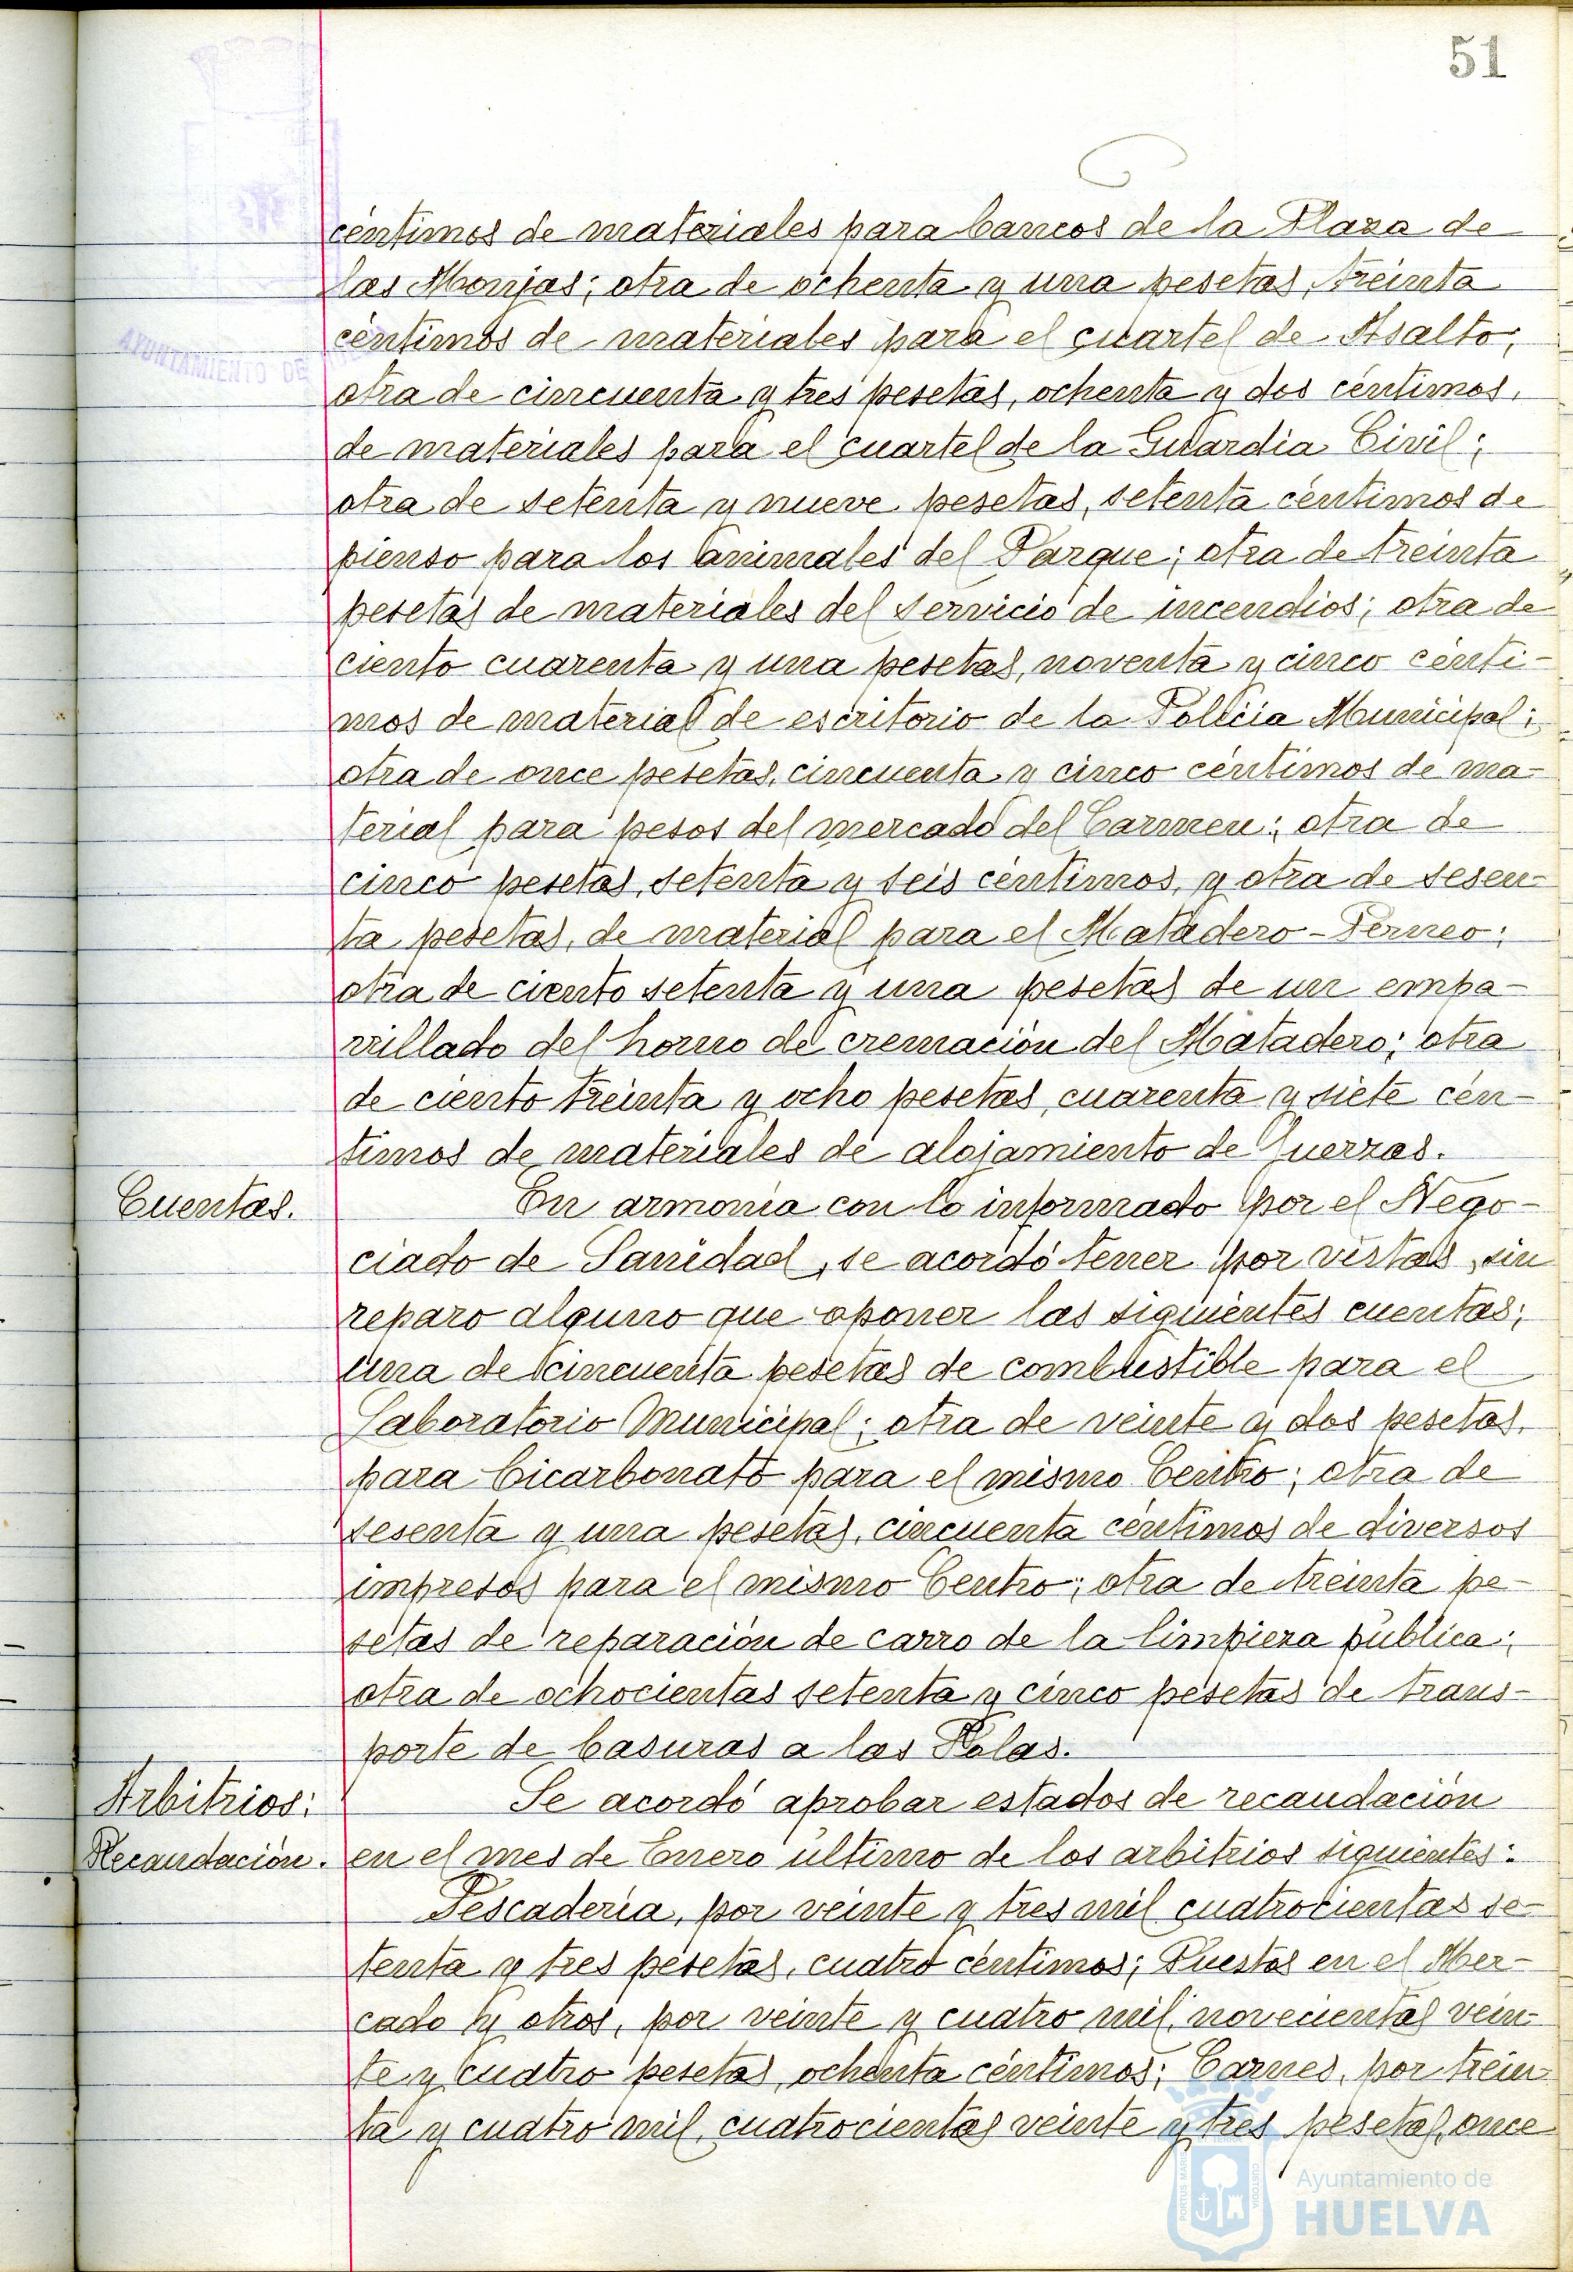 51
céntimos de materiales para bancos de la Plaza de
las Monjas; otra de ochenta y una pesetas, treinta
céntimos de materiales para el cuartel de Asalto;
otra de cincuenta y tres pesetas, ochenta y dos céntimos,
de materiales para el cuartel de la Guardia Civil;
otra de setenta y nueve pesetas, setenta céntimos de
pienso para los animales del Parque; otra de treinta
pesetas de materiales del servicio de incendios; otra de
ciento cuarenta y una pesetas, noventa y cinco cénti-
mos de material de escritorio de la Policía Municipal;
otra de once pesetas, cincuenta y cinco céntimos de ma-
terial para pesos del mercado del Carmen; otra de
cinco pesetas, setenta y seis céntimos, y otra de sesen-
ta pesetas, de material para el Matadero-Perneo;
otra de ciento setenta y una pesetas de un empa-
rrillado del horno de cremación del Matadero; otra
de ciento treinta y ocho pesetas, cuarenta y siete cén-
timos de materiales de alojamiento de Guerras.
Cuentas. En armonía con lo informado por el Nego-
ciado de Sanidad, se acordó tener por vistas, sin
reparo alguno que oponer las siguientes cuentas;
una de cincuenta pesetas de combustible para el
Laboratorio Municipal; otra de veinte y dos pesetas,
para bicarbonato para el mismo Centro; otra de
sesenta y una pesetas, cincuenta céntimos de diversos
impresos para el mismo Centro; otra de treinta pe-
setas de reparación de carro de la limpieza pública;
otra de ochocientas setenta y cinco pesetas de trans-
porte de basuras a las
Arbitrios: Se acordó aprobar estados de recaudación
Recaudación. en el mes de Enero último de los arbitrios siguientes:
Pescadería, por veinte y tres mil cuatrocientas se-
tenta y tres pesetas, cuatro céntimos; Puestos en el Mer-
cado y otros, por veinte y cuatro mil, novecientas vein-
te y cuatro pesetas, ochenta céntimos; Carnes, por trein-
ta y cuatro mil, cuatrocientas veinte y tres pesetas, once
AYUNTAMIENTO DE
Ayuntamiento de
HUELVA